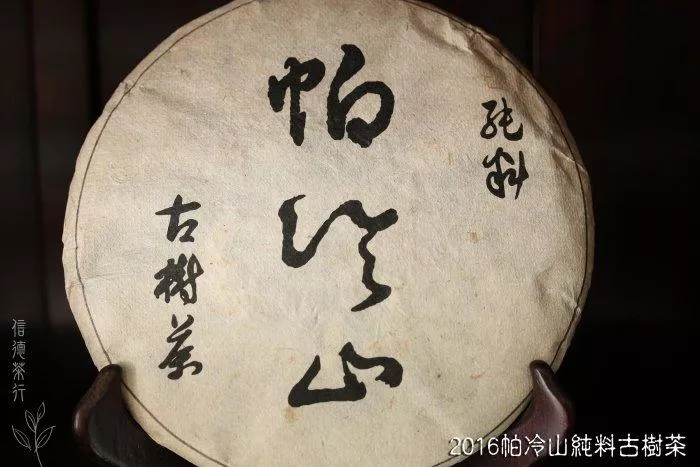 純料
帕冷山
古樹茶
信德茶行
2016帕冷山純料古樹茶